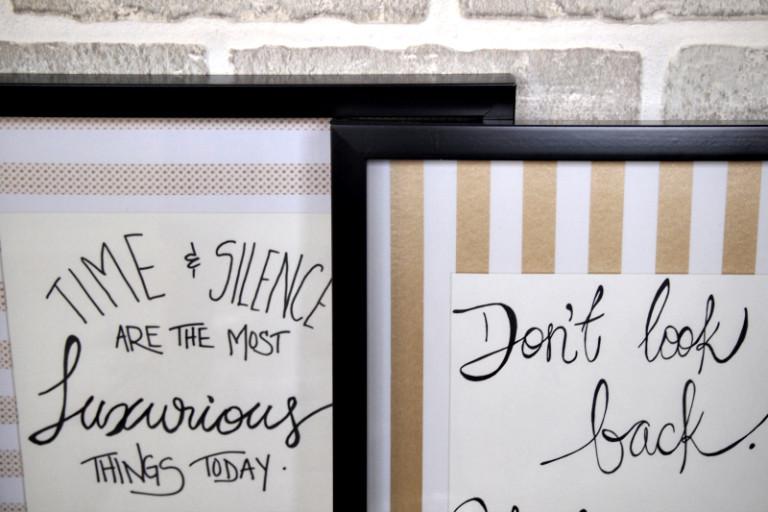 TIME & SILENCE
ARE THE MOST
Luxurious
THINGS TODAY.
Don't look
back.